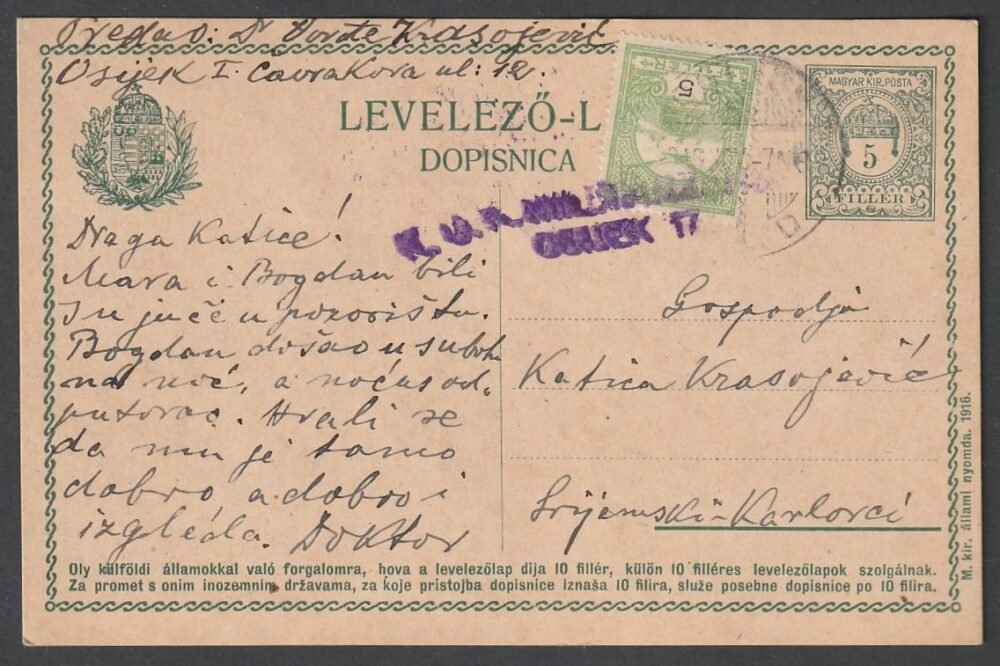 Predao: Dr Đorđe Krasojević
Osijek I. Čavrakova ul: 12.
LEVELEZŐ-L
DOPISNICA
MAGYAR KIR. POSTA
5
FILLÉR
5
FILLÉR
K. u. K. MILI
OSIJEK
Draga Katice!
Mara i Bogdan bili
su juče u pozorištu.
Bogdan došao u subotu
na noć, a noćas od-
putovao. Hvali se
da mu je tamo
dobro, a dobro i
izgleda. Doktor
Gospodja
Katica Krasojević
Srijemski-Karlovci
Oly külföldi államokkal való forgalomra, hova a levelezőlap dija 10 fillér, külön 10 filléres levelezőlapok szolgálnak.
Za promet s onim inozemnim državama, za koje pristojba dopisnice iznaša 10 filira, služe posebne dopisnice po 10 filira.
M. kir. állami nyomda. 1916.